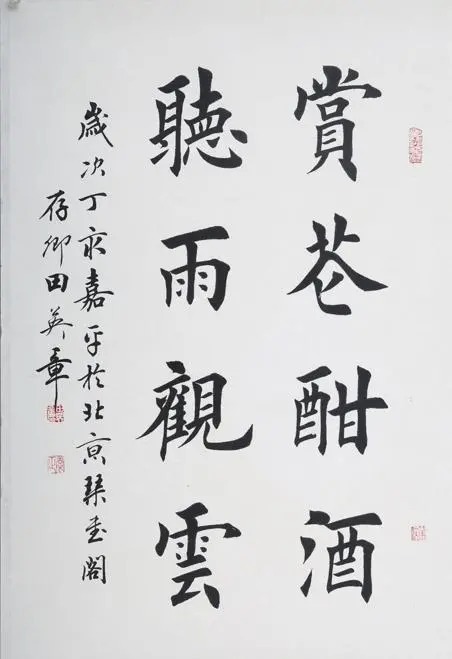 賞芲酣酒
聽雨觀雲
歲次丁亥嘉平於北京琹書閣
存卿田英章